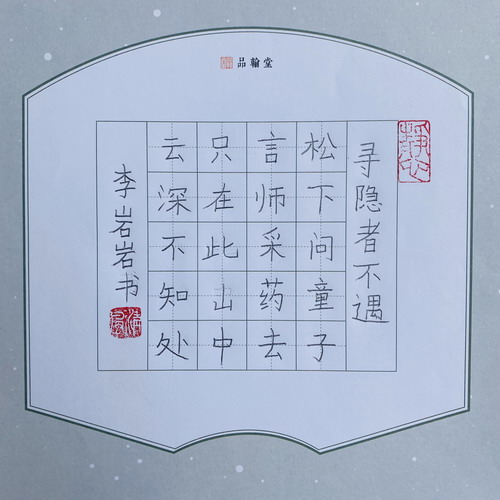 品翰堂
静心
寻隐者不遇
松下问童子
言师采药去
只在此山中
云深不知处
李岩岩书